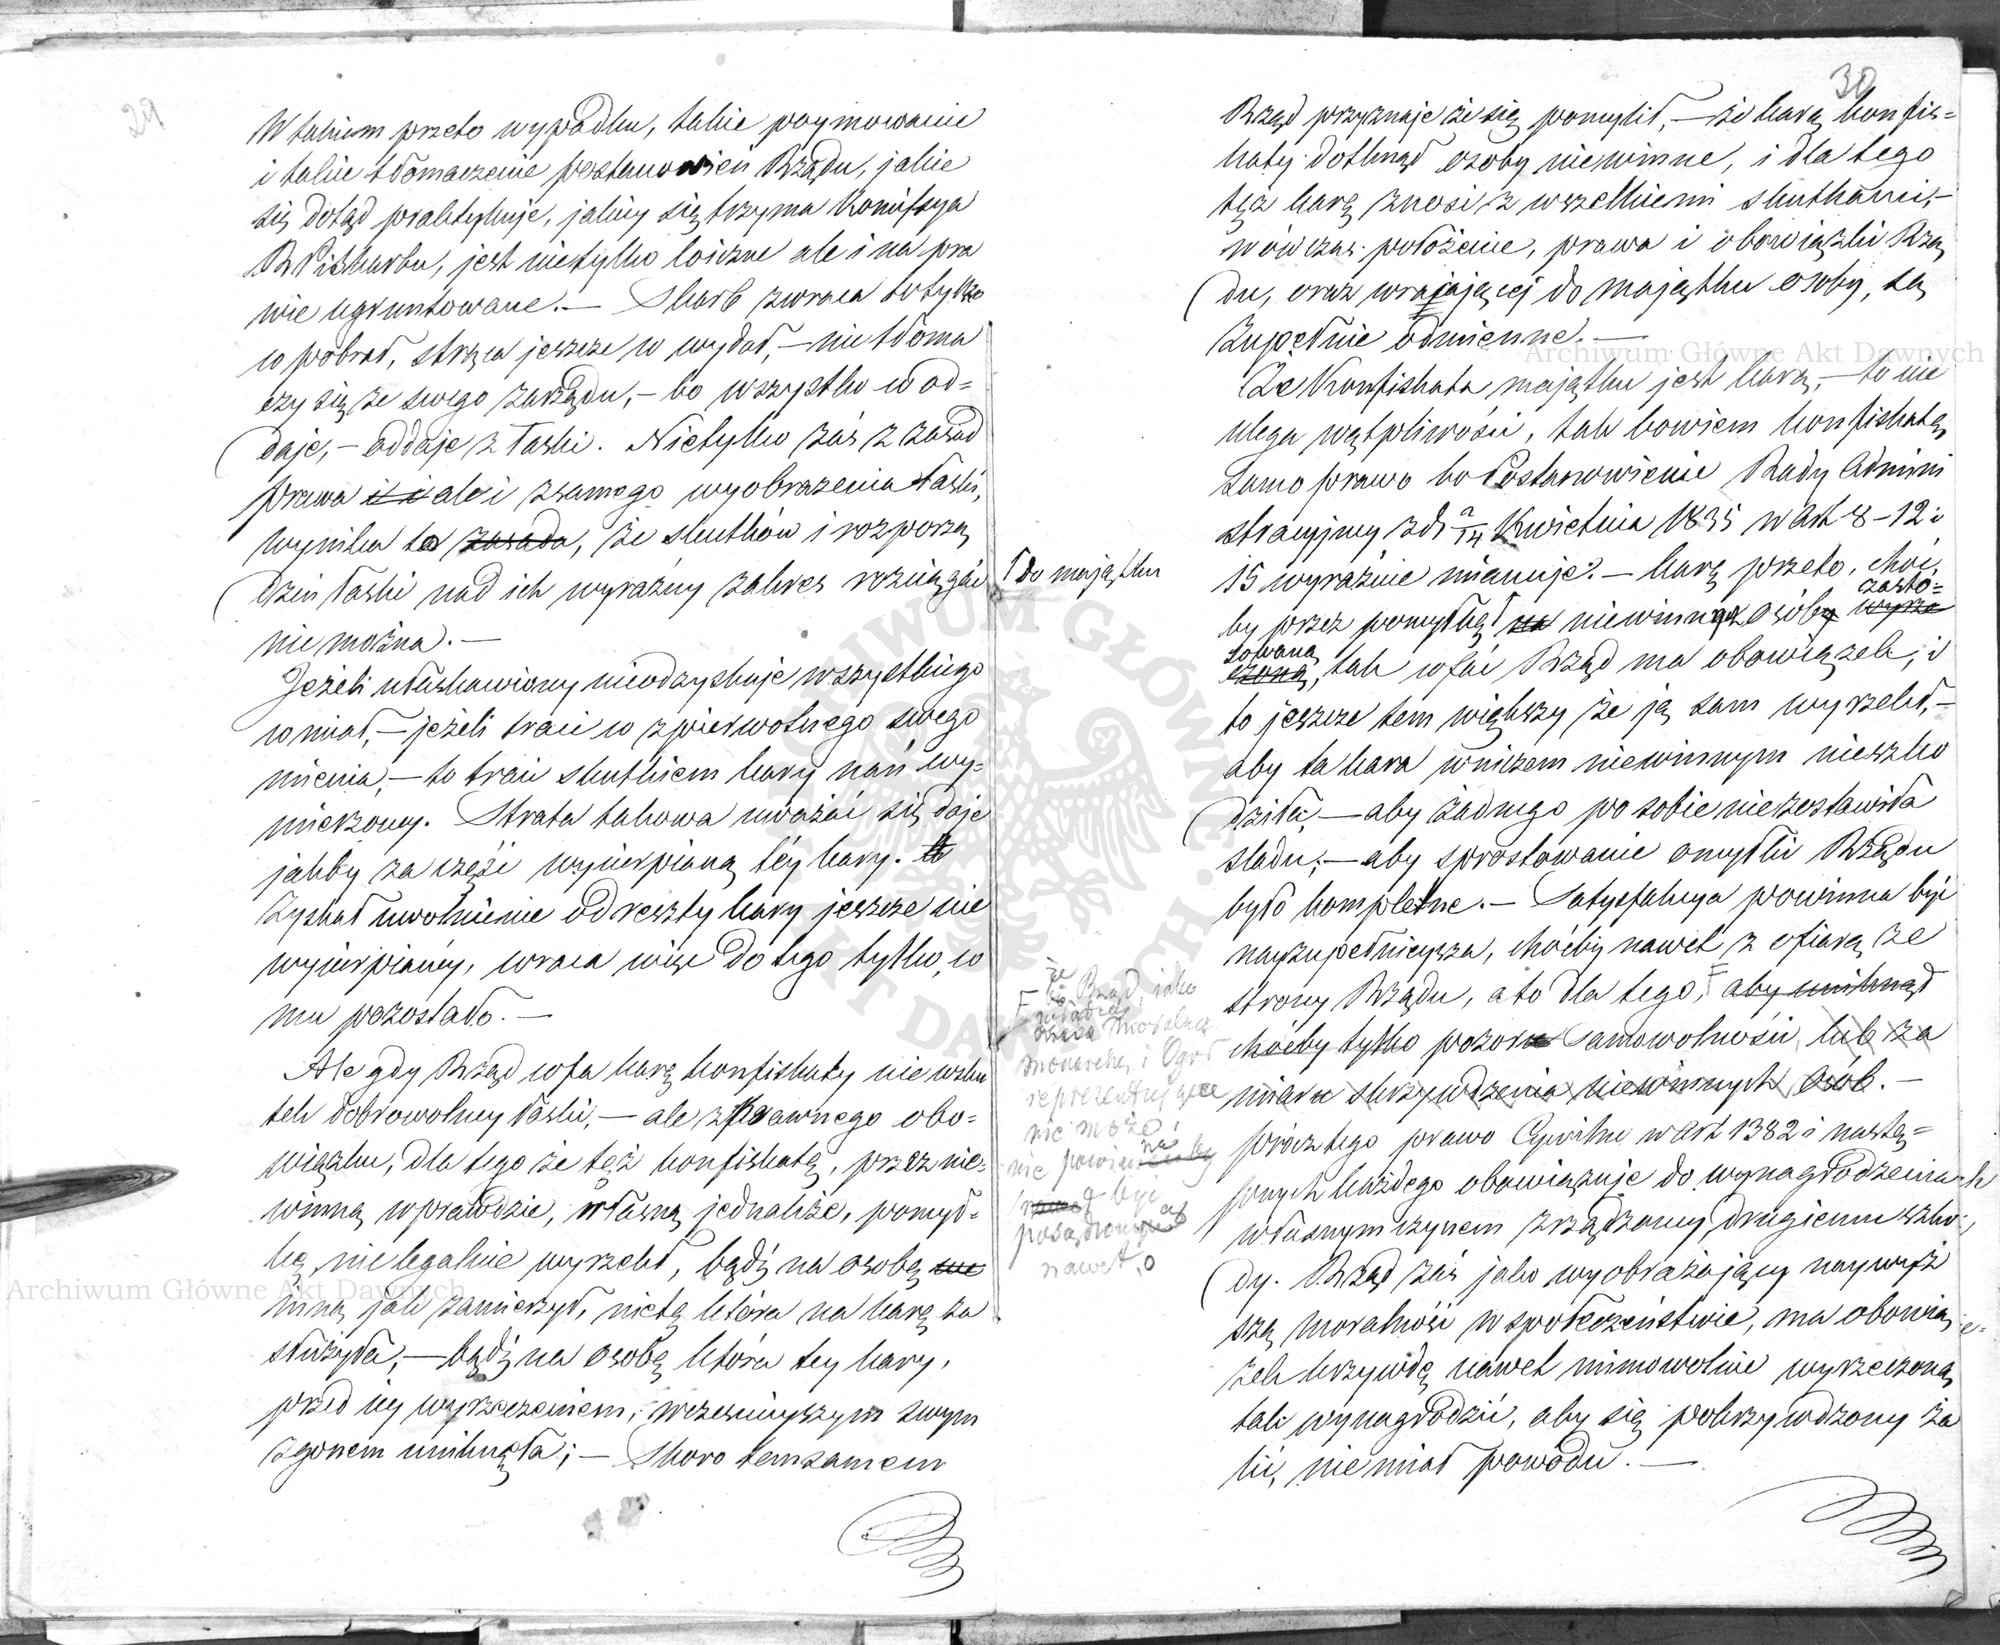 29
W takiem przeto wypadku, takie poymowanie
i takie tłomaczenie postanowień Rządu, jakie
się dotąd praktykuje, jakiey się trzyma Komissya
R P i Skarbu, jest nietylko loiczne ale i na pra
wie ugruntowane. — Skarb zwraca to tylko
co pobrał, strąca jeszcze co wydał, — nie tłoma
czy się ze swego zarządu, — bo wszystko co od=
daje, — oddaje z łaski. Nietylko zaś z zasad
prawa ale i z samego wyobrażenia łaski,
wynika to zasada, że skutków i rozporzą
dzeń łaski nad ich wyraźny zakres rozciągać
nie można. —
Jeżeli ułaskawiony nieodzyskuje wszystkiego
co miał, — jeżeli traci co z pierwotnego swego
mienia, — to traci skutkiem kary nań wy=
mierzoney. Strata takowa uważać się daje
jakby za część wycierpianą téy kary.
Zyskał uwolnienie od reszty kary jeszcze nie
wycierpianéy, wraca więc do tego tylko, co
mu pozostało. —
Ale gdy Rząd cofa karę konfiskaty nie wsku
tek dobrowolney łaski, — ale z prawnego obo=
wiązku, dla tego że też konfiskatę, przez nie=
winną wprawdzie, własną jednakże, pomył=
kę nielegalnie wyrzekł, bądź na osobę
inną jak zamierzył, nie tę która na karę za
służyła, — bądź na osobę która tey kary,
przed iey wyrzeczeniem, wcześnieyszym swym
zgonem uniknęła; — Skoro temsamem
do majątku
że
Rząd, jako
władza
moralną
monarchę i Ogół
reprezentujące
nie może
nie powin na
być
posądzony
nawet o
30
Rząd przyznaje że się pomylił, — że karą konfis=
katy dotknął osoby niewinne, i dla tego
też karę znosi z wszelkiemi skutkami, —
wówczas położenie, prawa i obowiązki Rzą
du, oraz wracającej do majątku osoby, są
zupełnie odmienne. —
Że Konfiskata majątku jest karą, — to nie
ulega wątpliwości, tak bowiem konfiskatę
samo prawo bo Postanowienie Rady Admini
stracyjney z d. 2/14 Kwietnia 1835 w Art 8 – 12 i
15 wyraźnie mianuje. — Karę przeto, choć
by przez pomyłkę na niewinnych osóby wyrze
zasto=
sowaną
czoną, tak cofać Rząd ma obowiązek, i
to jeszcze tem większy że ją sam wyrzekł, —
aby ta kara w niczem niewinnym nieszko
dziła, — aby żadnego po sobie niezostawiła
śladu, — aby sprostowanie omyłki Rządu
było kompletne. — Satysfakcya powinna być
nayzupełnieysza, choćby nawet z ofiarą ze
strony Rządu, a to dla tego, aby uniknął
choćby tylko pozoru samowolności, lub za
miaru skrzywdzenia niewinnych osób. —
prócz tego prawo Cywilne w Art 1382 i nastę=
pnych każdego obowiązuje do wynagrodzenia
własnym czynem zrządzoney drugiemu szko=
dy. Rząd zaś jako wyobrażający naywyż
szą moralność w społeczeństwie, ma obowią
zek krzywdę nawet mimowolnie wyrzeczoną
tak wynagrodzić, aby się pokrzywdzony ża
lić, nie miał powodu. —
Archiwum Główne Akt Dawnych
Archiwum Główne Akt Dawnych
ARCHIWUM GŁÓWNE AKT DAWNYCH